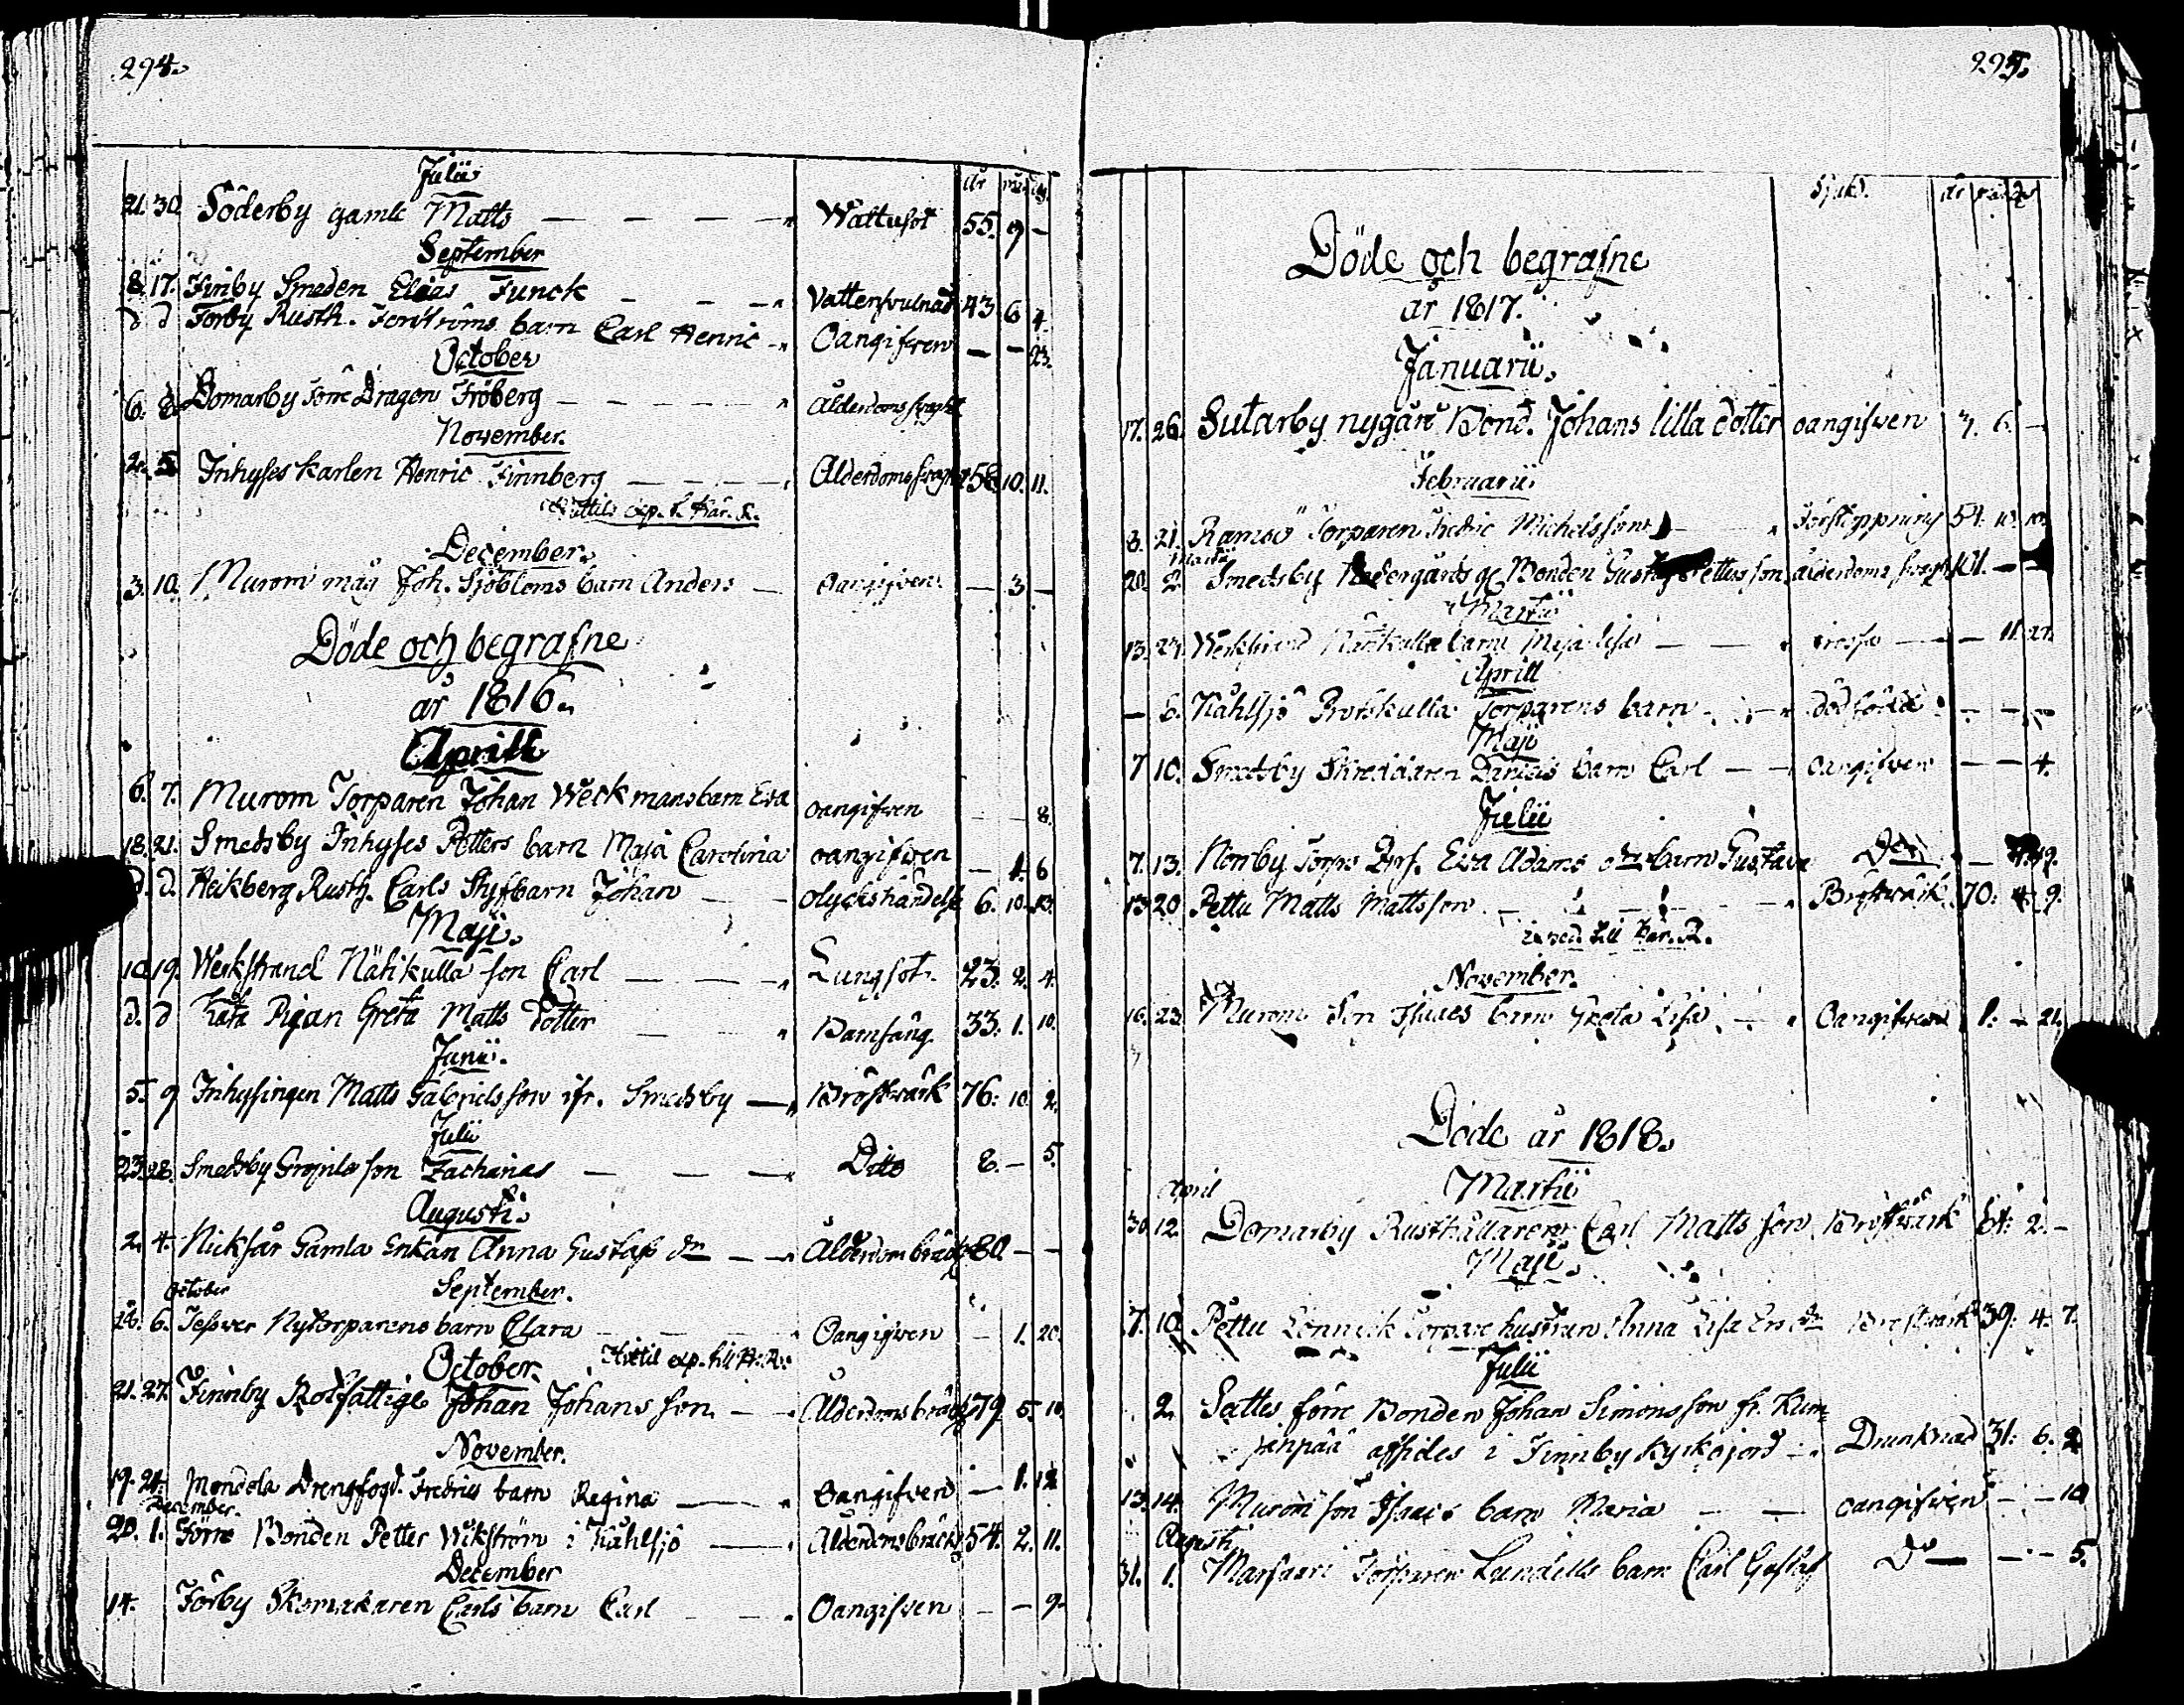 294.
Julii
år
21. 30. Söderby gamle Matts — — — — Wattusot 55. 9 —
September
8. 17. Finby Smeden Elias Funck — — — Vattensvulnad 43 6 4.
d d Förby Rusth. Forströms barn Carl Henric — Oangifven — — 23.
October
6. 8. Domarby förre Dragon Fröberg — — — — — Ålderdoms
November.
2. 5. Inhyses karlen Henric Finnberg — — — — Ålderdoms 58. 10. 11.
exp. t. Kår. R.
December.
3. 10. Murom måg Joh. Sjöbloms barn Anders — Oangifven — 3 —
Döde och begrafne
år 1816.
Aprill
6. 7. Murom Torparen Johan Weckmans barn Eva oangifven — — 8.
18. 21. Smedsby Inhyses Petters barn Maja Carolina oangifven — 1. 6
d. d. Heikberg Rusth. Carls Styfbarn Johan — — olyckshändelse 6. 10. 13.
Maji.
10. 19. Werkstrand Näsikulla son Carl — — — Lungsot. 23. 2. 4.
d. d Pigan Greta Matts Dotter — — Barnsäng. 33. 1. 10.
Junii.
5. 9 Inhysingen Matts Gabrielsson ifr. Smedsby — Bröstwärk 76. 10. 2.
Julii
23. 28. Smedsby son Zacharias — — — Ditto 8. — 5.
Augusti.
2. 4. Nicksår Gamla Enkan Anna Gustafs dr — — Ålderdom 80 — —
October
September.
28. 6. Nytorparens barn Clara — — — Oangifven — 1. 20.
exp. till
October.
21. 27. Finnby Rotfattige Johan Johansson — — Ålderdoms 79 5. 10.
November.
19. 24. Mondola Drengfogd. Fredrics barn Regina — — Oangifven — 1. 12
December.
20. 1. Förre Bonden Petter Wikström i Kåhlsjö — — Ålderdoms 54. 2. 11.
December
14. Förby Skomakaren Carls barn Carl — — Oangifven — — 9.
295.
Sjukd. år
Döde och begrafne
år 1817.
Januarii.
17. 26. Sutarby nygård Bond. Johans lilla dotter oangifven 7. 6. —
Februarii
8. 21. Ramsö Torparen Fredric Michelsson — Förstoppning 54. 10.
20. 2. Smedsby Nedergårds gl. Bonden Gustaf Pettersson ålderdoms 101. — —
Martii
13. 23. Werkstrand barn Maja Lisa — — — 11. 21.
Aprill
— 6. Kåhlsjö Torparens barn — — dödfödd — — —
Maji
7 10. Smedsby Skreddaren Daniels barn Carl — — Oangifven — — 4.
Julii
7. 13. Norrby Torps Eva Adams dr barn Gustava Do —
13. 20 Pettu Matts Mattsson — — — Bröstwärk 70. 4. 9.
till Kår. R.
November.
16. 23. Murom son Isaacs barn Greta Lisa — Oangifven 1. — 21.
Döde år 1818.
April
Martii
30. 12. Domarby Rusthållaren Carl Mattsson Bröstwärk 61. 2. —
Maji.
7. 10. Pettu hustrun Anna Lisa Bröstwärk 39. 4. 7.
Julii
2. förre Bonden Johan Simonsson fr. Kum-
penpää affides i Finnby Kyrkojord — Drunknad 31. 6. 2
13. 14. Murom son Isaacs barn Maria — — oangifven — — 10
Augusti
31. 1. Torparen Lundells barn Carl Gustaf Do — — — 5.